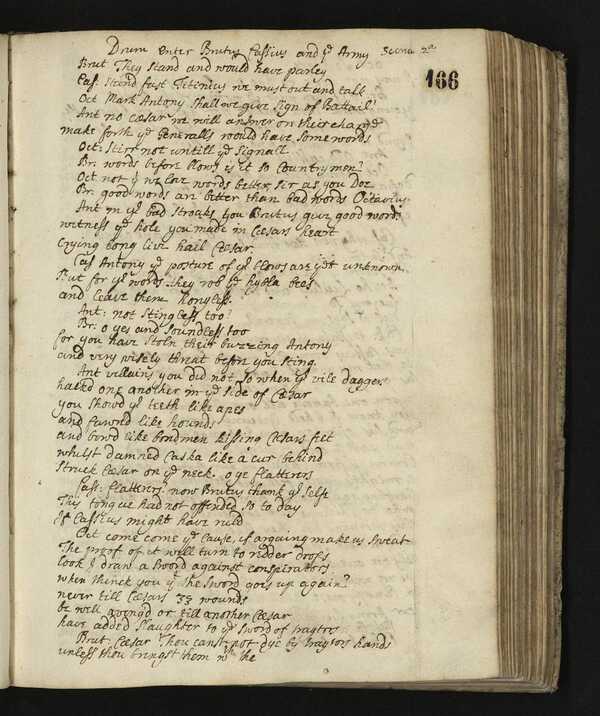 Drum enter Brutus Cassius and yᵉ Army Scena 2ᵃ
166
Brut They stand and would have parley
Cass: Stand fast Titinius we must out and talk
Oct Mark Antony shall we give sign of Battail?
Ant no Cæsar we will answer on their charge
make forth yᵉ Generalls would have some words
Oct: Stirr not untill yᵉ Signall
Br: words before blows, is it so Countrymen?
Oct not yᵗ we love words better Sir as you Doe
Br: good words are better than bad words Octavius
Ant in yʳ bad stroaks you Brutus give good words
witness yᵉ hole you made in Cæsars heart
Crying long live hail Cæsar
Cass Antony yᵉ posture of yʳ blows are yet unknown
But for yʳ words they rob yᵉ hybla bees
and leave them honyless.
Ant: not stingless too?
Br: o yes and soundless too
for you have stoln their buzzing Antony
and very wisely threat before you sting.
Ant villains you did not so when yʳ vile daggers
hacked one another in yᵉ side of Cæsar
you show'd yʳ teeth like apes
and fawnd like hounds
and bow'd like bondmen kissing Cæsars feet
whilst damned Caska like a cur behind
Struck Cæsar on yᵉ neck. o ye flatterers
Cass: flatterers! now Brutus thank yʳ self
This tongue had not offended so to day
If Cassius might have ruld
Oct come come yᵉ Cause, if arguing make us sweat
The proof of it will turn to redder drops
look I draw a sword against conspirators
when thinck you yᵗ the sword goes up again?
never till Cæsars 33 wounds
be well aveng'd or till another Cæsar
have added slaughter to yᵉ sword of traytors
Brut: Cæsar Thou canst not dye by traytors hands
unless thou bringst them wᵗʰ the